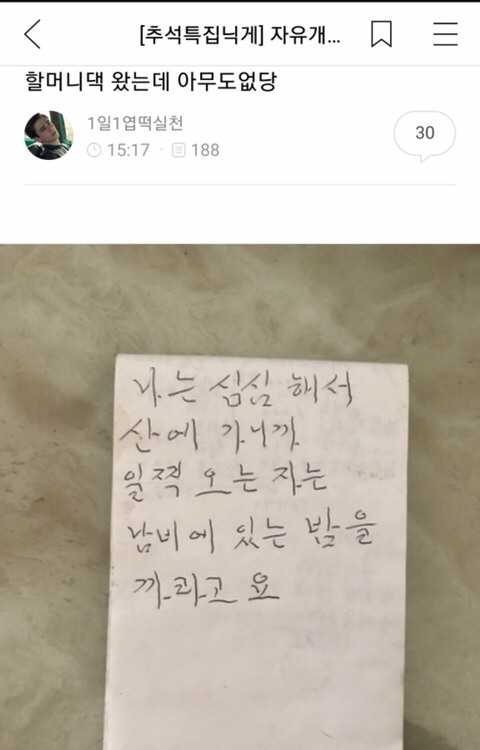 [추석특집닉게] 자유개...
할머니댁 왔는데 아무도없당
1일1엽떡실천
15:17 · 188
30
나는 심심 해서
산에 가니까
일찍 오는 자는
남비에 있는 밤을
까라고 요